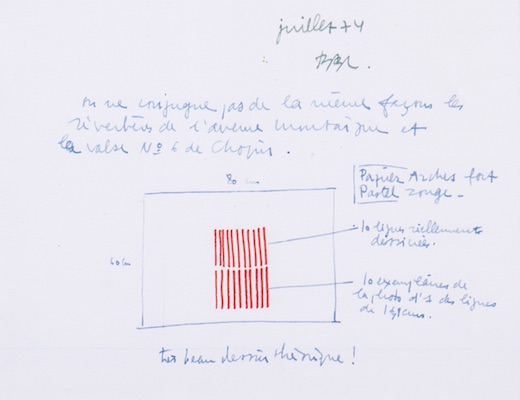 juillet 74
on ne conjugue pas de la même façons les
réverbères de l'avenue Montaigne et
la valse № 6 de Chopin.
80 cm
60 cm
Papier Arches fort
Pastel rouge.
10 lignes réellement
dessinées.
10 exemplaires de
la photo d'1 des lignes
de
très beau dessin théorique!